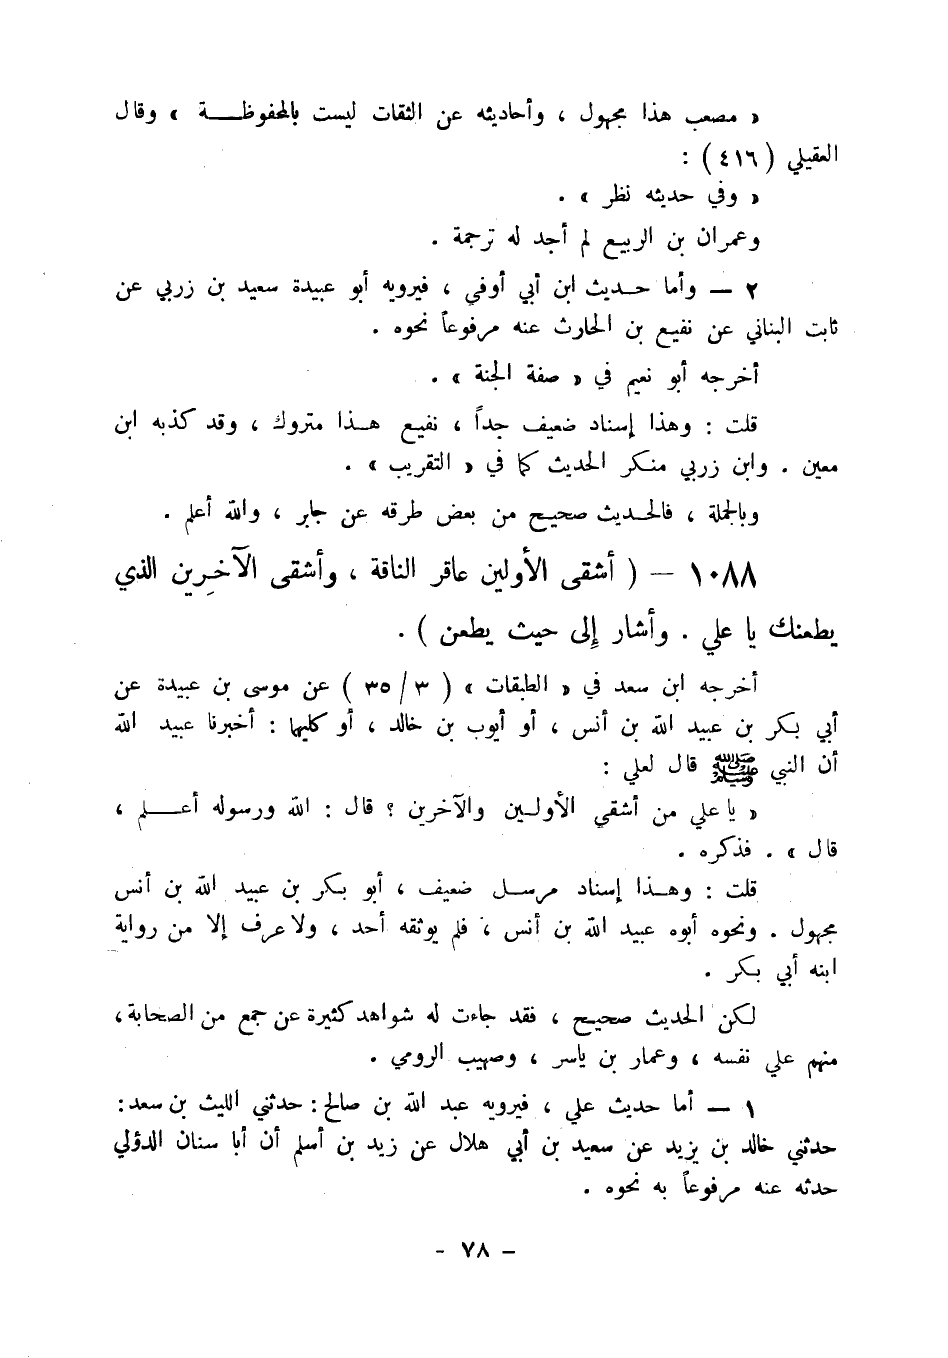 « مصعب هذا مجهول ، وأحاديثه عن الثقات ليست بالمحفوظة » وقال
العقيلي ( ٤١٦ ) :
« وفي حديثه نظر » .
وعمران بن الربيع لم أجد له ترجمة .
٢ — وأما حديث ابن أبي أوفي ، فيرويه أبو عبيدة سعيد بن زربي عن
ثابت البناني عن نفيع بن الحارث عنه مرفوعاً نحوه .
أخرجه أبو نعيم في « صفة الجنة » .
قلت : وهذا إسناد ضعيف جداً ، نفيع هذا متروك ، وقد كذبه ابن
معين . وابن زربي منكر الحديث كما في « التقريب » .
وبالجملة ، فالحديث صحيح من بعض طرقه عن جابر ، والله أعلم .
١٠٨٨ — ( أشقى الأولين عاقر الناقة ، وأشقى الآخرين الذي
يطعنك يا علي . وأشار إلى حيث يطعن ) .
أخرجه ابن سعد في « الطبقات » ( ٣ / ٣٥ ) عن موسى بن عبيدة عن
أبي بكر بن عبيد الله بن أنس ، أو أيوب بن خالد ، أو كليهما : أخبرنا عبيد الله
أن النبي ﷺ قال لعلي :
« يا علي من أشقى الأولين والآخرين ؟ قال : الله ورسوله أعلم ،
قال » . فذكره .
قلت : وهذا إسناد مرسل ضعيف ، أبو بكر بن عبيد الله بن أنس
مجهول . ونحوه أبوه عبيد الله بن أنس ، فلم يوثقه أحد ، ولا عرف إلا من رواية
ابنه أبي بكر .
لكن الحديث صحيح ، فقد جاءت له شواهد كثيرة عن جمع من الصحابة ،
منهم علي نفسه ، وعمار بن ياسر ، وصهيب الرومي .
١ — أما حديث علي ، فيرويه عبد الله بن صالح : حدثني الليث بن سعد :
حدثني خالد بن يزيد عن سعيد بن أبي هلال عن زيد بن أسلم أن أبا سنان الدؤلي
حدثه عنه مرفوعاً به نحوه .
- ٧٨ -